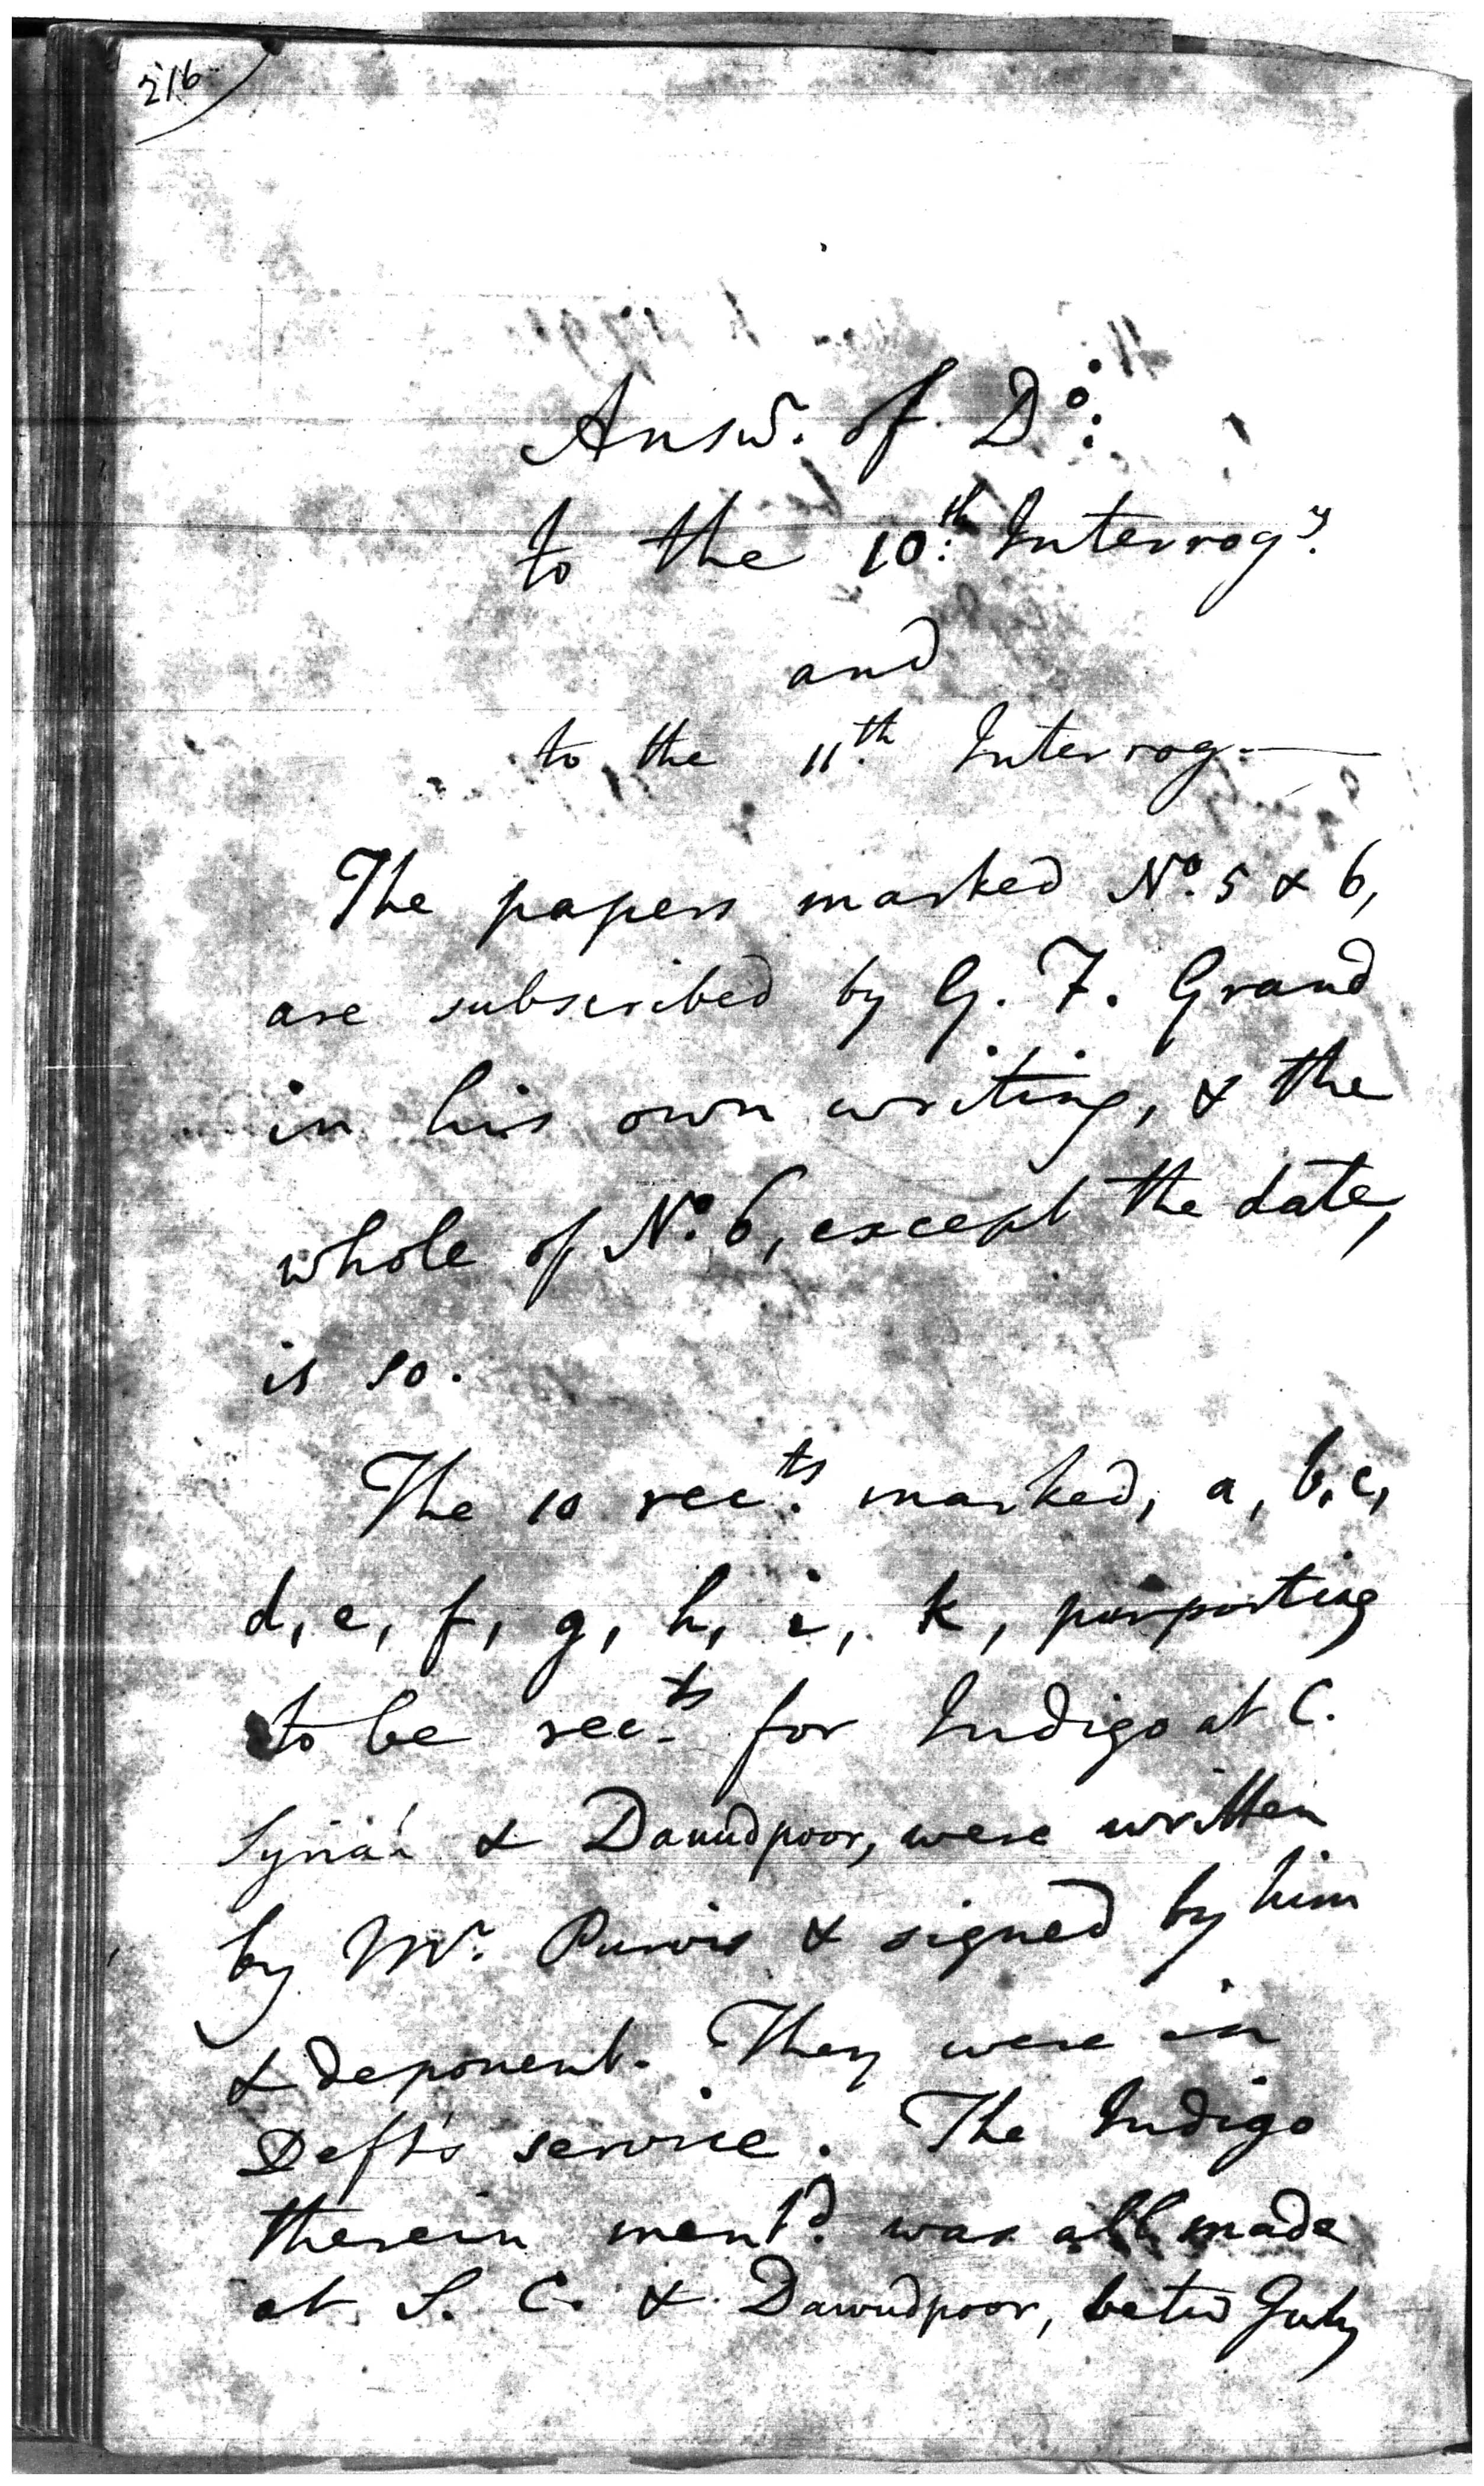 216
Answ. of Do:
to the 10th: Interrogy.
and
to the 11th. Interrog.
The papers marked No. 5 & 6,
are subscribed by G. F. Grand
in his own writing, & the
whole of No. 6, except the date,
is so.
The 10 rects. marked, a, b, c,
d, e, f, g, h, i, k, purporting
to be rects. for Indigo at C.
& Dauudpoor, were written
by Mr. Purvis & signed by him
& deponent. They were in
Deft's service. The Indigo
therein mentd. was all made
at S. C. & Dawudpoor, betw July